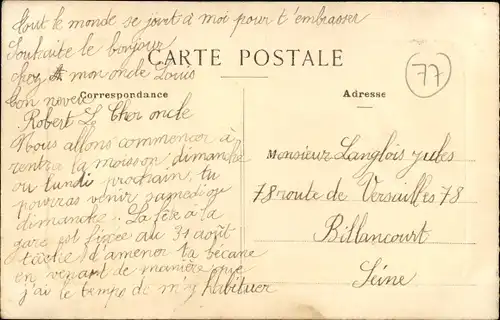 Tout le monde se joint a moi pour t'embrasser
Souhaite le bonjour
chez mon oncle Louis
CARTE POSTALE
77
bon neveu
Correspondance
Adresse
Robert L. Cher oncle
Nous allons commencer à
rentrer la moisson, dimanche
ou lundi prochain, tu
pourras venir samedi ou
dimanche. La fête à la
gare est fixée au 31 août
tâche d'amener ta bécane
en venant de manière que
j'ai le temps de m'y habituer
Monsieur Langlois Jules
78 route de Versailles 78
Billancourt
Seine